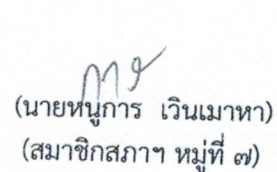 (นายหนูการ เวินเมาหา)
(สมาชิกสภาฯ หมู่ที่ ๗)